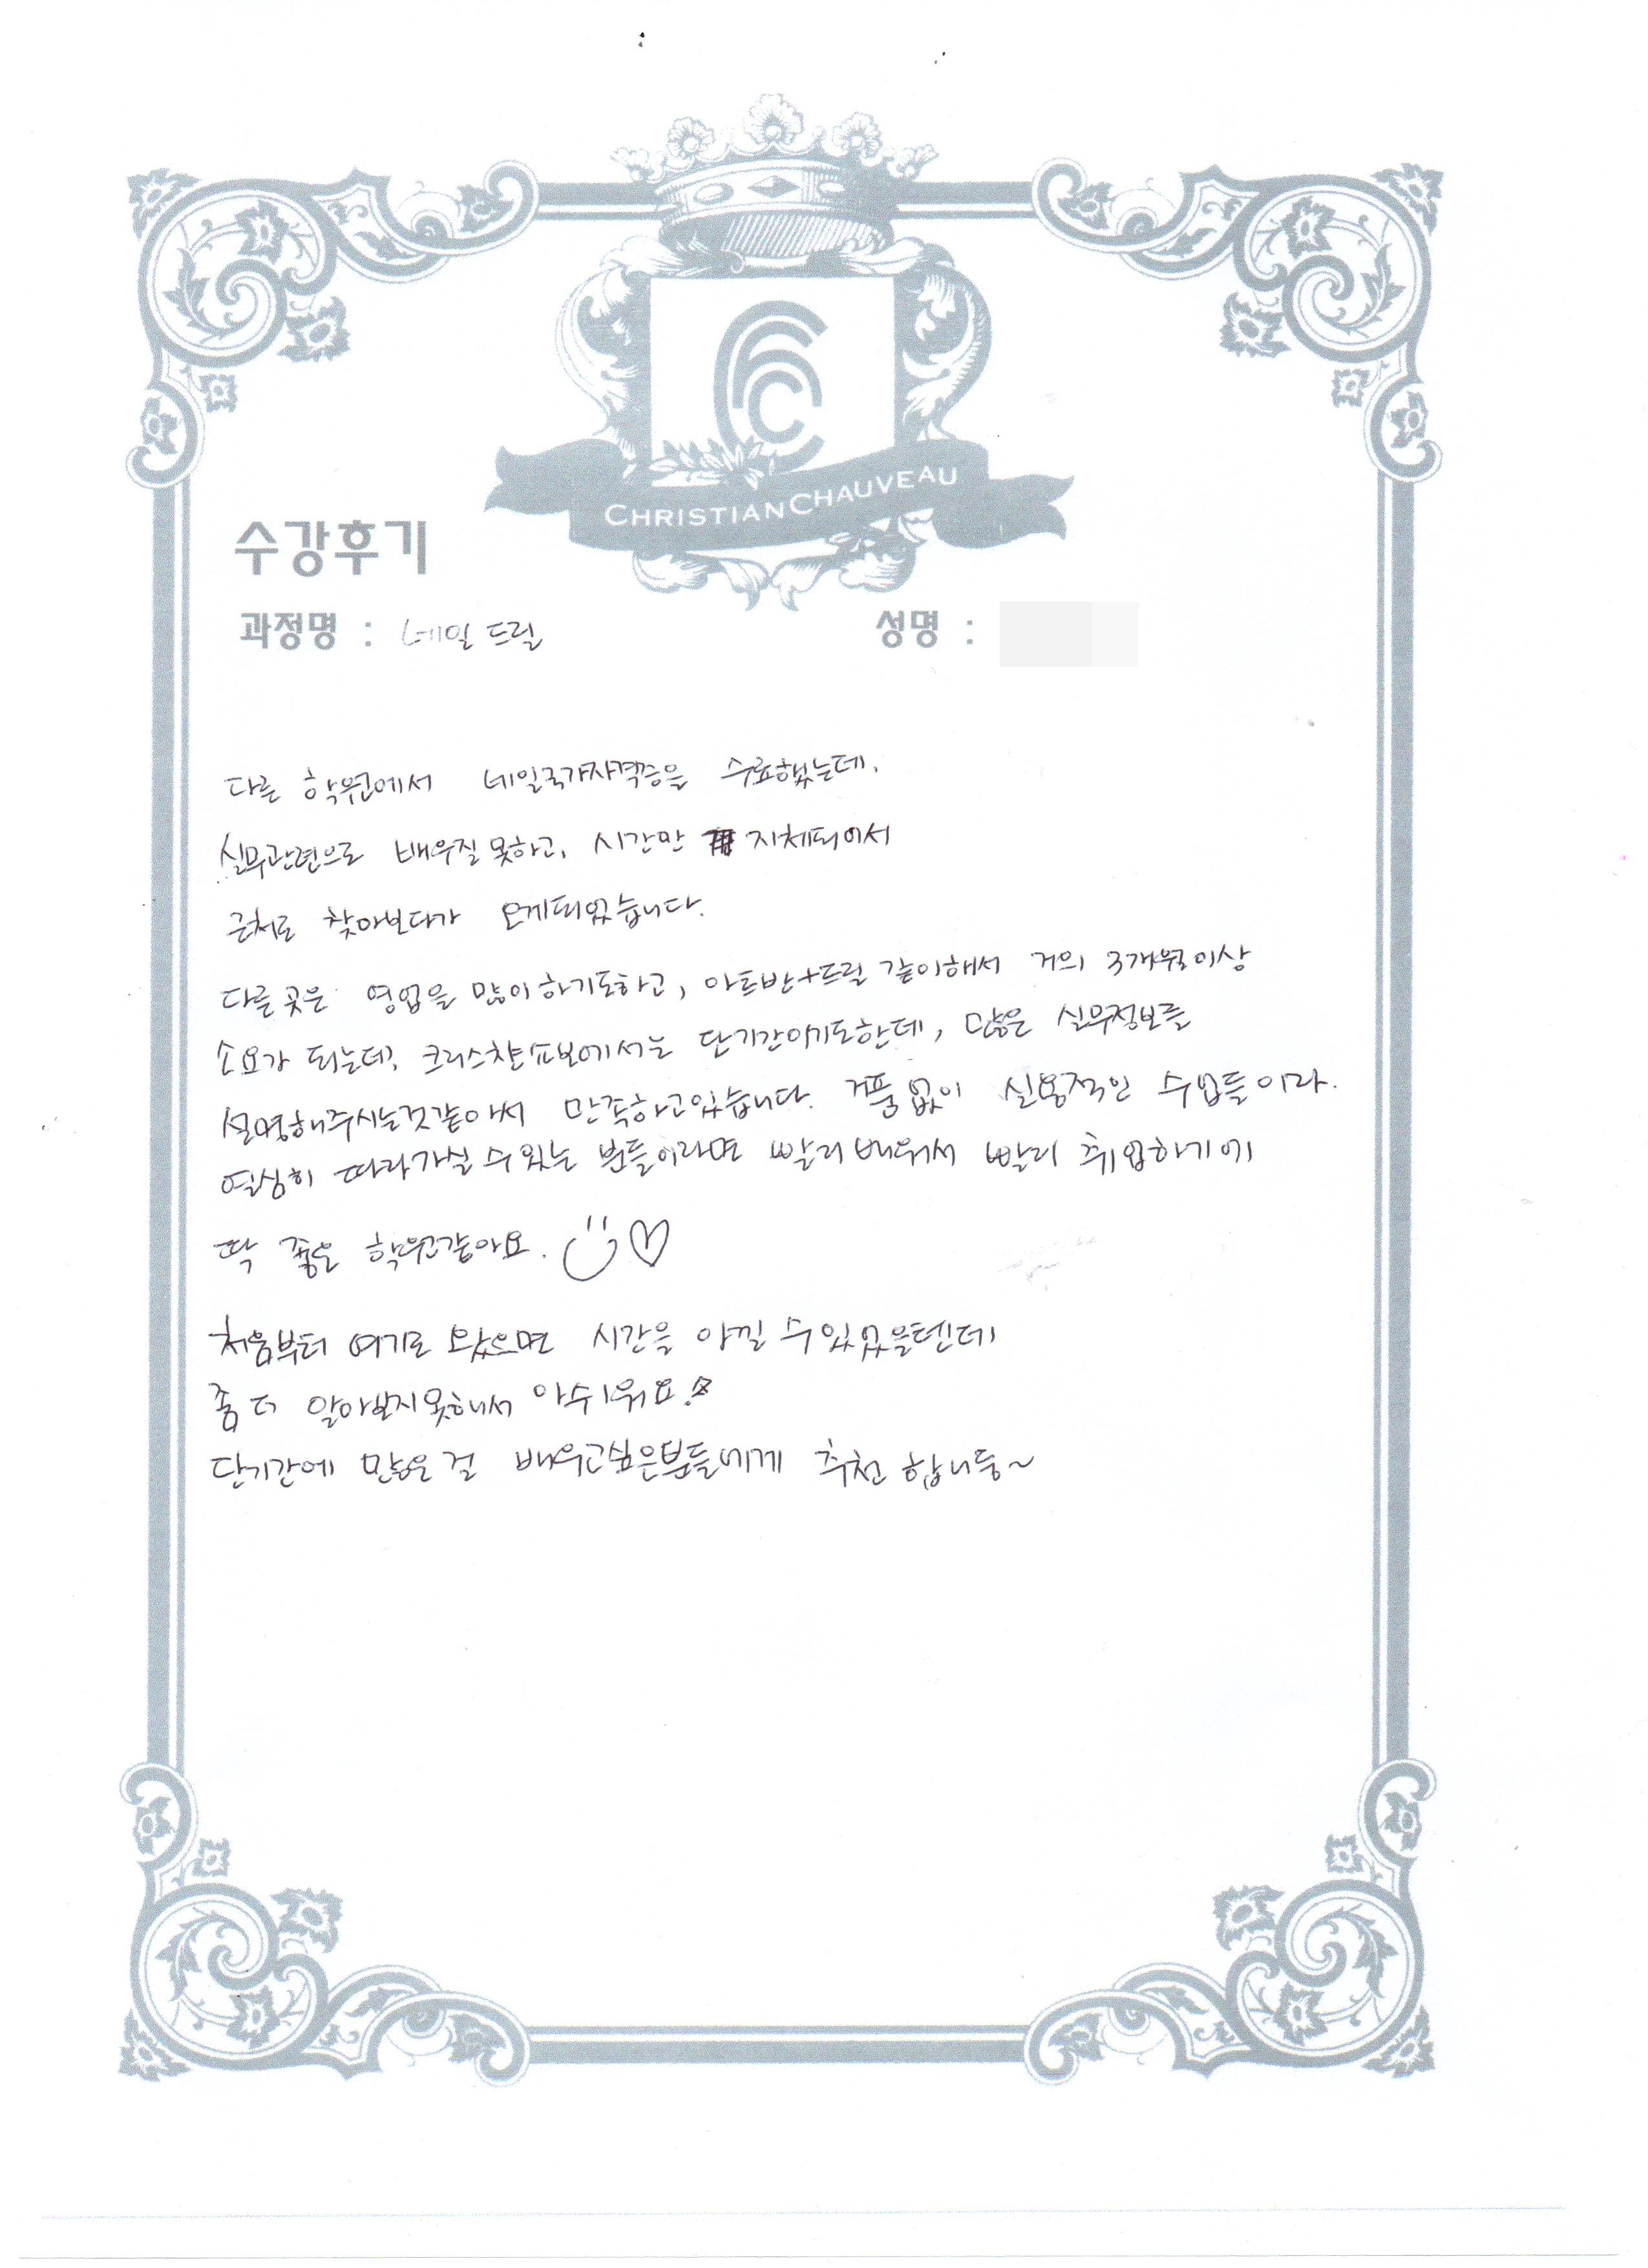 CHRISTIAN CHAUVEAU
수강후기
과정명 : 네일 드릴
성명 :
다른 학원에서 네일국가자격증을 수료했는데,
실무관련으로 배우질 못하고, 시간만 지체되어서
근처로 찾아보다가 오게되었습니다.
다른 곳은 영업을 많이 하기도하고, 아트반+드릴 같이해서 거의 3개월이상
소요가 되는데, 크리스챤쇼보에서는 단기간이기도한데, 많은 실무정보를
설명해주시는것같아서 만족하고있습니다. 거품 없이 실용적인 수업들이라.
열심히 따라가실 수 있는 분들이라면 빨리 배워서 빨리 취업하기에
딱 좋은 학원같아요.
처음부터 여기로 왔으면 시간을 아낄 수 있었을텐데
좀 더 알아보지못해서 아쉬워요.
단기간에 많은 걸 배우고싶은분들에게 추천 합니둥~